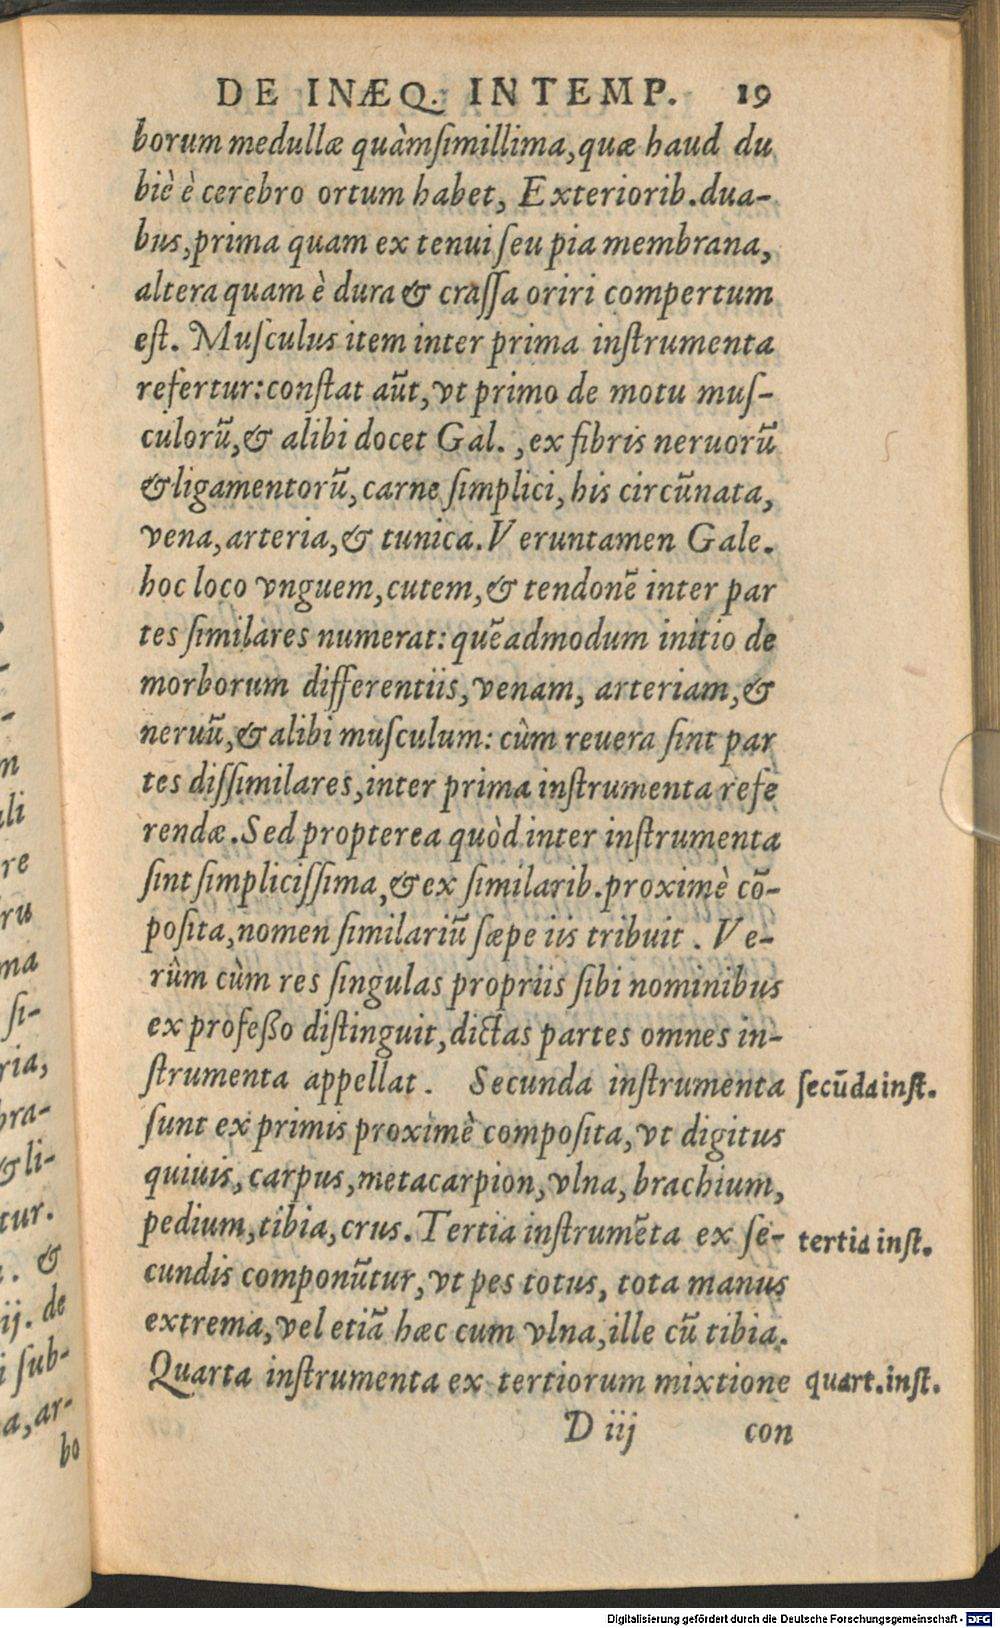 DE INÆQ. INTEMP. 19
borum medullæ quàmſimillima, quæ haud du
biè è cerebro ortum habet, Exteriorib. dua-
bus, prima quam ex tenui ſeu pia membrana,
altera quam è dura & craſſa oriri compertum
eſt. Muſculus item inter prima inſtrumenta
refertur: conſtat aūt, vt primo de motu muſ-
culorū, & alibi docet Gal., ex fibris neruorū
& ligamentorū, carne ſimplici, his circūnata,
vena, arteria, & tunica. Veruntamen Gale.
hoc loco vnguem, cutem, & tendonē inter par
tes ſimilares numerat: quēadmodum initio de
morborum differentiis, venam, arteriam, &
neruū, & alibi muſculum: cùm reuera ſint par
tes diſſimilares, inter prima inſtrumenta refe
rendæ. Sed propterea quòd inter inſtrumenta
ſint ſimpliciſſima, & ex ſimilarib. proximè cō-
poſita, nomen ſimilariū ſæpe iis tribuit. Ve-
rûm cùm res ſingulas propriis ſibi nominibus
ex profeßo diſtinguit, dictas partes omnes in-
ſtrumenta appellat. Secunda inſtrumenta ſecūda inſt.
ſunt ex primis proximè compoſita, vt digitus
quiuis, carpus, metacarpion, vlna, brachium,
pedium, tibia, crus. Tertia inſtrumēta ex ſe- tertia inſt.
cundis componūtur, vt pes totus, tota manus
extrema, vel etiā hæc cum vlna, ille cū tibia.
Quarta inſtrumenta ex tertiorum mixtione quart. inſt.
D iij con
n
li
re
ru
ma
ſi-
ria,
bra-
& li-
tur.
. &
ij. de
i ſub-
a, ar-
bo
Digitalisierung gefördert durch die Deutsche Forschungsgemeinschaft - DFG